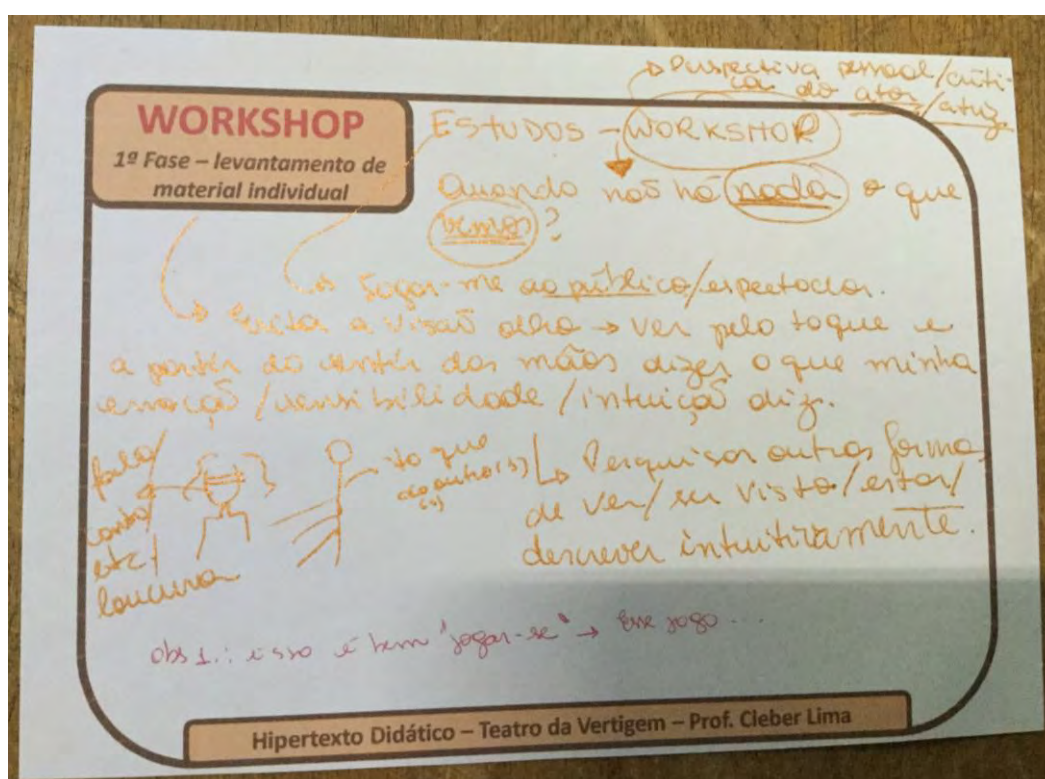 Perspectiva pessoal/críti-
ca do ator/atriz
WORKSHOP
1ª Fase – levantamento de
material individual
ESTUDOS – WORKSHOP
Quando não há nada o que
vemos?
Jogar-me ao público/espectador.
a visão olho → ver pelo toque e
a partir do sentir das mãos dizer o que minha
emoção/sensibilidade/intuição diz.
fala/
canto/
etc/
loucura
toque
do outro(s)
(s)
Pesquisar outras formas
de ver/ser visto/estar/
descrever intuitivamente.
obs 1.: isso é bem "jogar-se" → Esse jogo...
Hipertexto Didático – Teatro da Vertigem – Prof. Cleber Lima